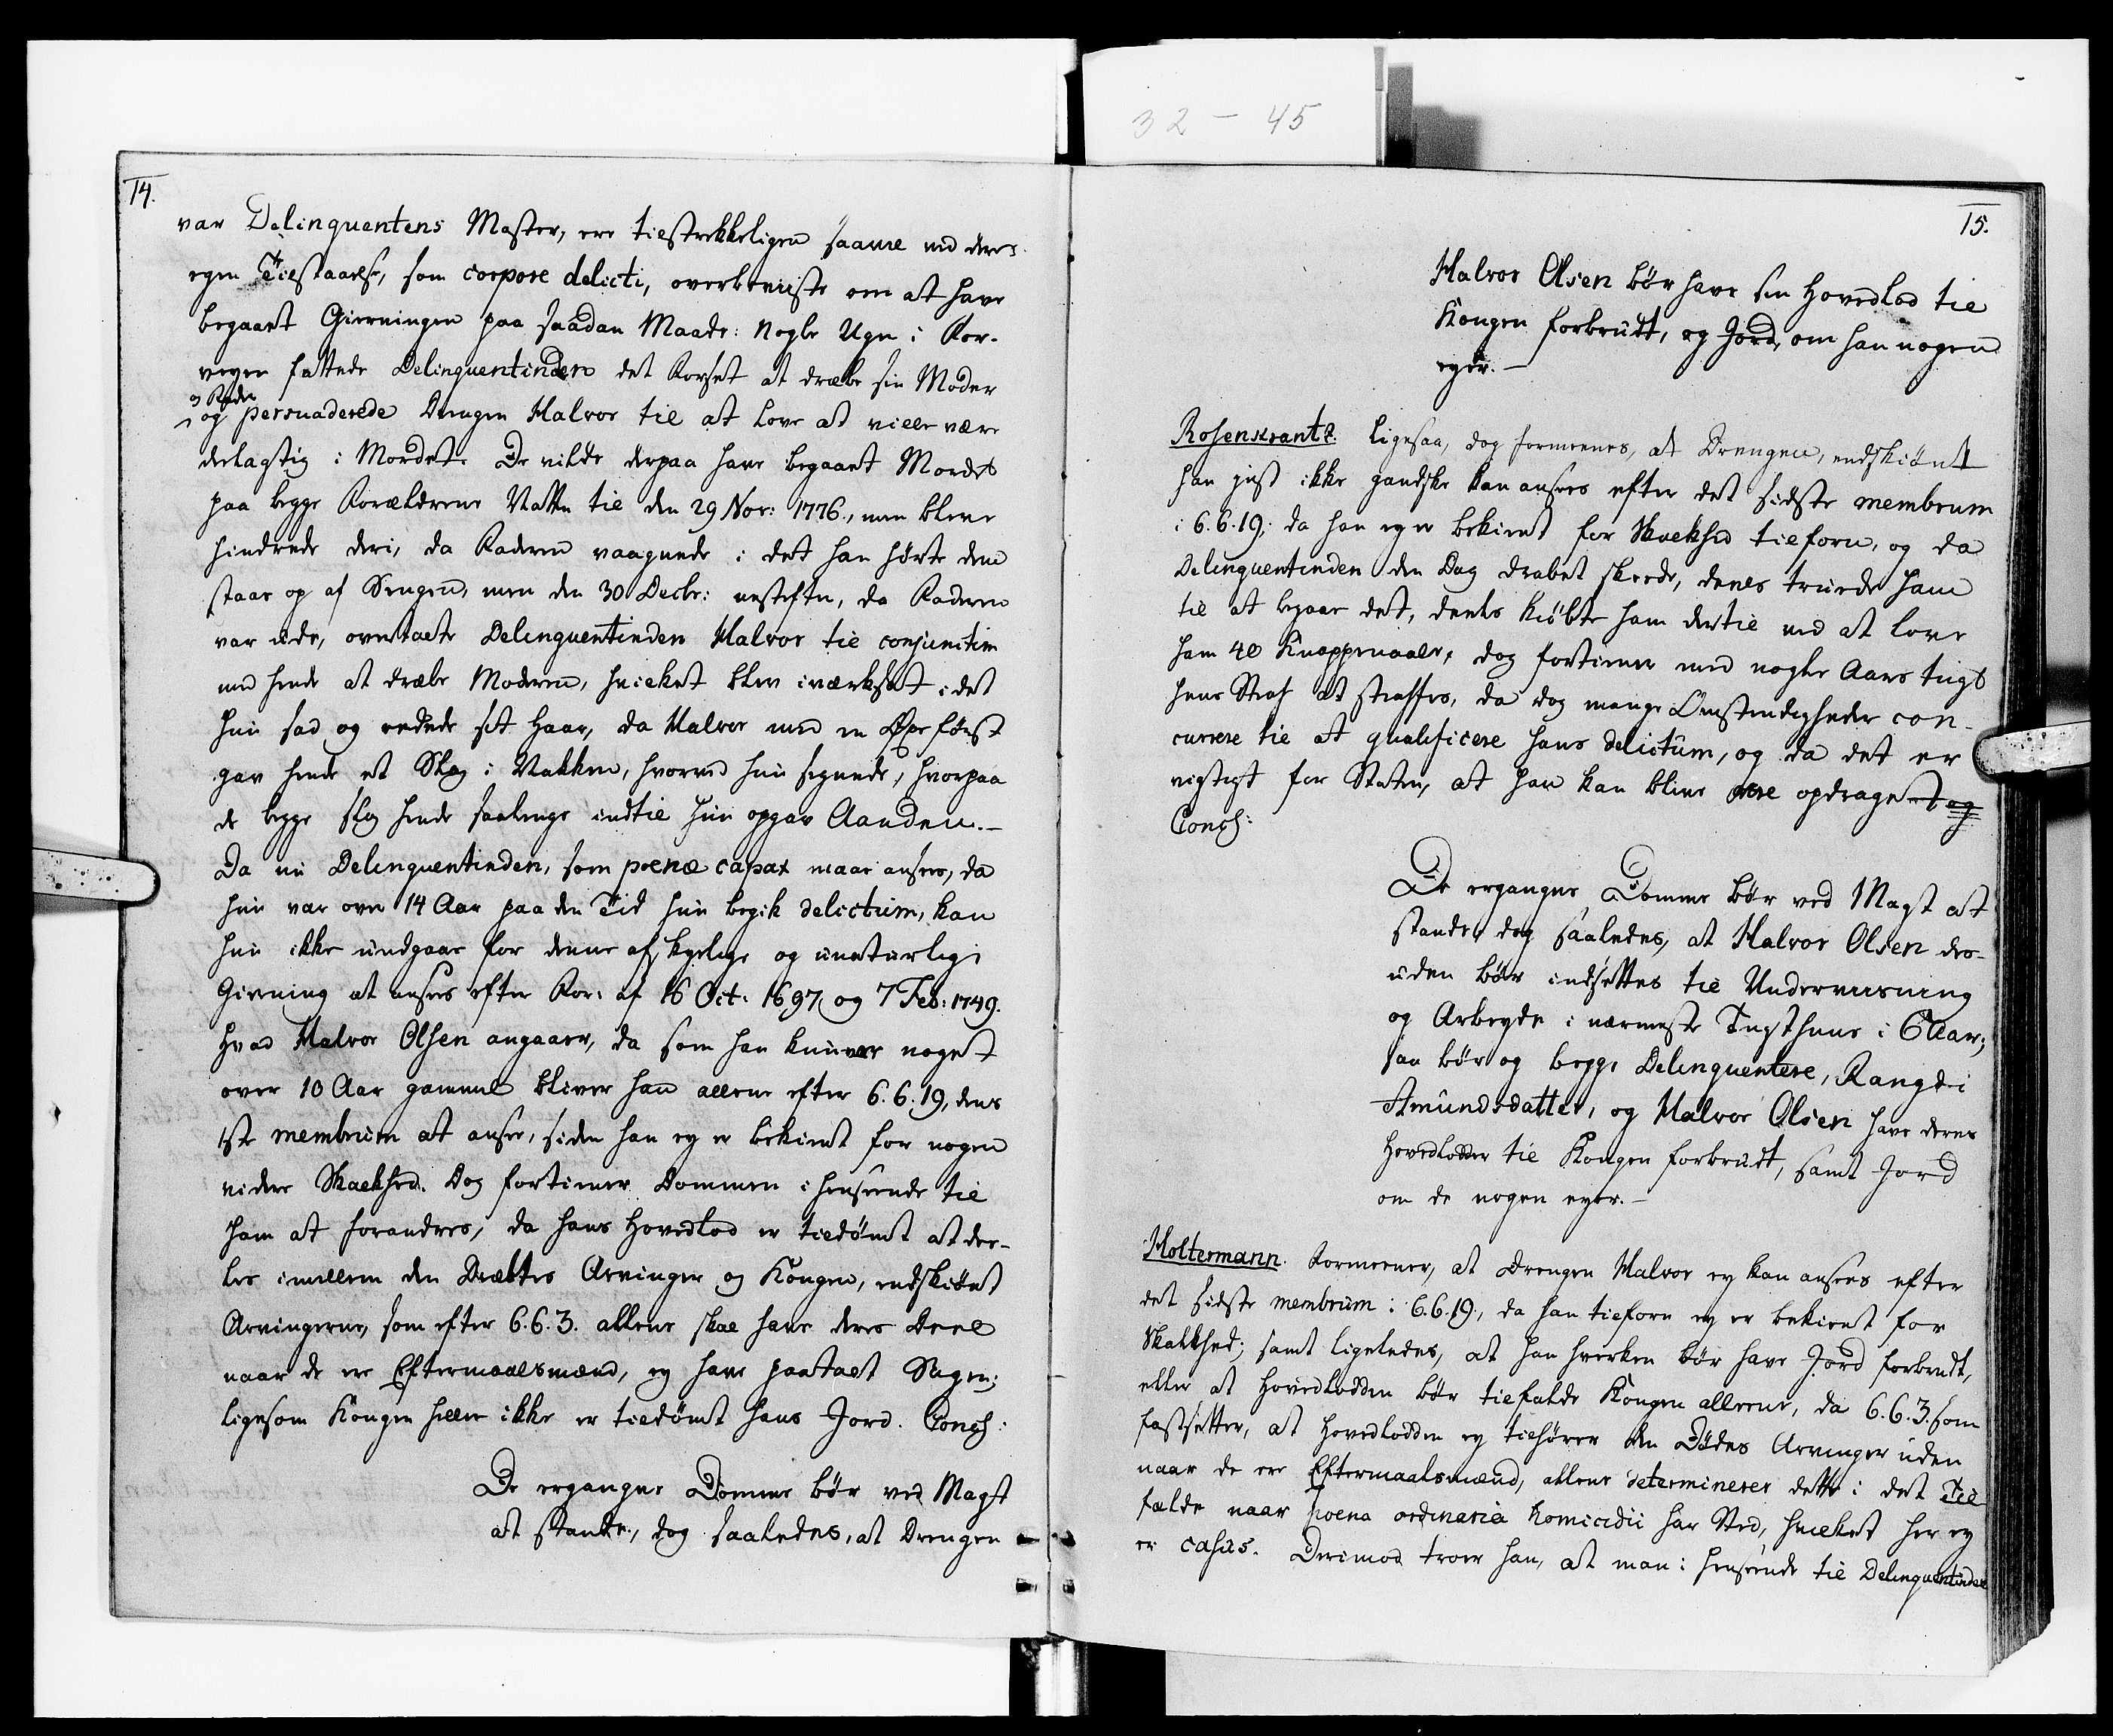 32 - 45
14.
var Delinquentens Moster, ere tilstrekkeligen saavel ved deres
egen Tilstaaelse, som corpore delicti, overbeviiste om at have
begaaet Gierningen paa saadan Maade: Nogle Uger i For-
veyen fattede Delinquentinden det Forset at dræbe sin Moder
og Fader
og persuaderede Drengen Halvor til at love at ville være
delagtig i Mordet. De vilde derpaa have begaaet Mordet
paa begge Forældrene Natten til den 29 Nov: 1776., men bleve
hindrede deri, da Faderen vaagnede i det han hørte dem
staae op af Sengen, men den 30 Decbr: nestefter, da Faderen
var ude, overtalte Delinquentinden Halvor til conjunctim
med hende at dræbe Moderen, hvilket blev iværksat, i det
hun sad og redede sit Haar, da Halvor med en Øxe først
gav hende et Slag i Nakken, hvorved hun segnede, hvorpaa
de begge slog hende saalenge indtil hun opgav Aanden.—
Da nu Delinquentinden, som poenæ capax maae ansees, da
hun var over 14 Aar paa den Tid hun begik delictum, kan
hun ikke undgaae for denne afskyelige og unaturlige
Gierning at ansees efter For: af 16 Oct: 1697 og 7 Feb: 1749.
Hvad Halvor Olsen angaaer, da som han kun var noget
over 10 Aar gammel bliver han allene efter 6.6.19, dens
1ste membrum at ansee, siden han ey er bekiendt for nogen
videre Skalkhed. Dog fortiener Dommen i henseende til
ham at forandres, da hans Hovedlod er tildømt at dee-
les imellem den Dræbtes Arvinger og Kongen, endskiønt
Arvingerne, som efter 6.6.3. allene skal have deres Deel
naar de ere Eftermaalsmænd, ey have paatalt Sagen;
ligesom Kongen heller ikke er tildømt hans Jord. Concl:
De ergangne Domme bør ved Magt
at stande, dog saaledes, at Drengen
15.
Halvor Olsen bør have sin Hovedlod til
Kongen forbrudt, og Jord, om han nogen
eyer.—
Rosenkrantz. Ligesaa, dog formeenes, at Drengen, endskiønt
han just ikke gandske kan ansees efter det sidste membrum
i 6.6.19; da han ey er bekiendt for Skalkhed tilforn, og da
Delinquentinden den Dag drabet skeede, deels truede ham
til at begaae det, deels kiøbte ham dertil ved at love
ham 40 Knappenaaler, dog fortiener med nogle Aars tugt
huus Straf at straffes, da dog mange Omstendigheder con-
currere til at qualificere hans delictum, og da det er
vigtigt for Staten, at han kan blive opdraget og
Concl:
De ergangne Domme bør ved Magt at
stande, dog saaledes, at Halvor Olsen des-
uden bør indsettes til Underviisning
og Arbeyde i nærmeste Tugthuus i 6 Aar;
saa bør og begge Delinquentere, Rangdi
Amundsdatter, og Halvor Olsen have deres
Hovedlodder til Kongen forbrudt, samt Jord
om de nogen eyer.—
Holtermann. Formeener, at Drengen Halvor ey kan ansees efter
det sidste membrum i 6.6.19., da han tilforn ey er bekiendt for
Skalkhed; samt ligeledes, at han hverken bør have Jord forbrudt,
eller at Hovedlodden bør tilfalde Kongen alleene, da 6.6.3. som
fastsetter, at Hovedlodden ey tilhører den Dødes Arvinger uden
naar de ere Eftermaalsmænd, allene determinerer dette i det Til
fælde naar poena ordinaria homicidii har Sted, hvilket her ey
er casus. Derimod troer han, at man i henseende til Delinquentinden